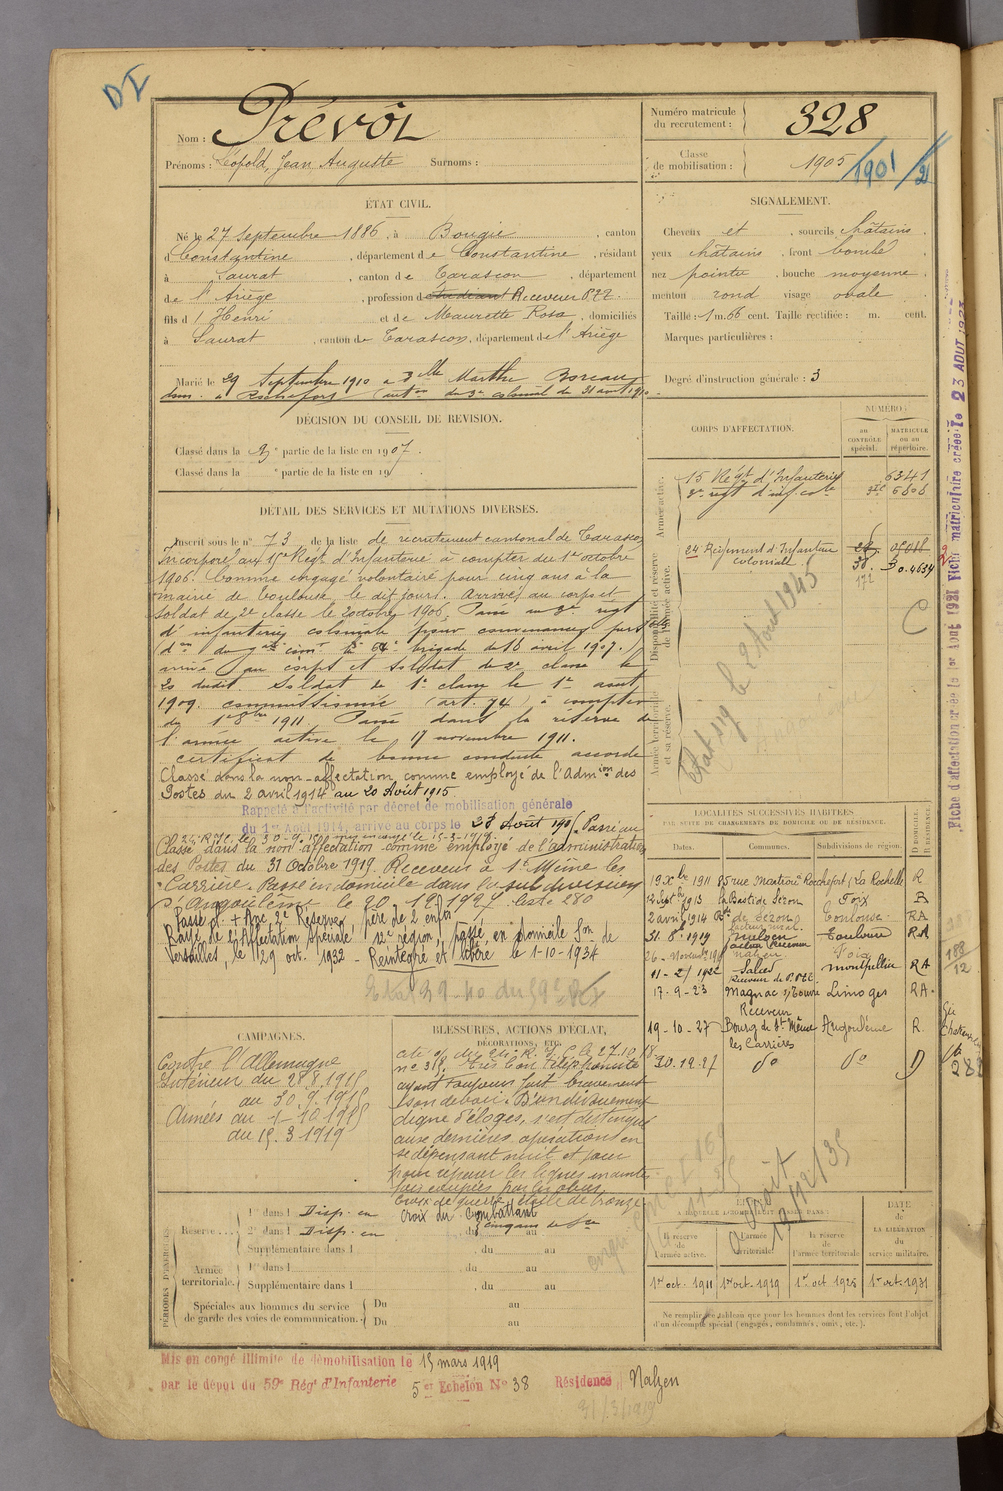 DI
Nom : Prévôt
Prénoms : Léopold, Jean Auguste Surnoms :
Numéro matricule du recrutement : 328
Classe de mobilisation : 1905 / 1901 / 21
ÉTAT CIVIL.
Né le 27 Septembre 1886, à Bougie, canton
d Constantine, département de Constantine, résidant
à Saurat, canton de Tarascon, département
de l'Ariège, profession d étudiant Receveur PTT.
fils d' Henri et de Maurette Rosa, domiciliés
à Saurat, canton de Tarascon, département de l'Ariège
Marié le 29 Septembre 1910 a Dlle Marthe Boreau
dom. à Rochefort (auton du 3e colonial du 31 août 1910
SIGNALEMENT.
Cheveux et , sourcils châtains,
yeux châtains, front bombé,
nez pointu, bouche moyenne,
menton rond visage ovale
Taille : 1 m. 66 cent. Taille rectifiée : m. cent.
Marques particulières :
Degré d'instruction générale : 3
DÉCISION DU CONSEIL DE REVISION.
Classé dans la 3e partie de la liste en 1907.
Classé dans la e partie de la liste en 19
DÉTAIL DES SERVICES ET MUTATIONS DIVERSES.
Inscrit sous le n° 73 de la liste de recrutement cantonal de Tarascon
Incorporé au 15e Régt d'Infanterie à compter du 1er octobre
1906. Comme engagé volontaire pour cinq ans à la
mairie de Toulouse le dit jour. Arrivé au corps et
soldat de 2e classe le 2 octobre 1906. Passé au 3e régt
d'infanterie coloniale pour convenances pers
brigade du 16 avril 1907.
arrivé au corps et soldat de 2e classe le
20 dudit. Soldat de 1e classe le 1er août
1909. commissionné (art. 74) à compter
du 1er 8bre 1911. Passé dans la réserve de
l'armée active le 17 novembre 1911.
certificat de bonne conduite accordé
Classé dans la non-affectation comme employé de l'Admion des
Postes du 2 avril 1914 au 20 Août 1915.
Rappelé à l'activité par décret de mobilisation générale
du 1er Août 1914, arrivé au corps le 28 Août 1915. Passé au
24e R.I.C. le 30-9-15
Classé dans la non affectation comme employé de l'administration
des Postes du 31 Octobre 1919. Receveur à St Même les
Carrières. Passé en domicile dans la subdivision
d'Angoulême le 20.12.1927 liste 280
Passé cl. + Anc 2e Réserve, père de 2 enfts
Rayé de l'Affectation spéciale 12e région, passé en domicile Son de
Versailles, le 29 oct. 1932 - Réintégré et libéré le 1-10-1934
CORPS D'AFFECTATION.
NUMÉRO :
au CONTRÔLE spécial.
MATRICULE ou au répertoire.
Armée active.
15 Régt d'Infanterie 6341
3e régt d'inf. cole 6808
Disponibilité et réserve de l'armée active.
24 Régiment d'Infanterie coloniale
38. 172
Armée territoriale et sa réserve.
le 2 Août 1945
LOCALITÉS SUCCESSIVES HABITÉES
PAR SUITE DE CHANGEMENTS DE DOMICILE OU DE RÉSIDENCE.
Dates. Communes. Subdivisions de région. D DOMICILE R RÉSIDENCE
19 Xbre 1911 Rochefort, La Rochelle R
12 Sept 1913 la Bastide Sérou Foix R
2 avril 1914 de Sérou Toulouse RA
31. 8bre 1919 Nalzen Toulouse RA
26 - Novembre Nalzen Foix
11-2/1922 Salces Receveur de PTT Montpellier RA
17-9-23 Magnac s/Touvre Receveur Limoges RA
19-10-27 Bourg de St Même les Carrières Angoulême R.
20.12.27 do do D
188
12
CAMPAGNES.
Contre l'Allemagne
Intérieur du 28.8.1915
au 30.9.1915
Armées du 1-10.1915
du 15.3.1919
BLESSURES, ACTIONS D'ÉCLAT,
DÉCORATIONS, ETC.
Cité o/ du 24e R.I.C. le 27.10.18
n° 318. Très bon téléphoniste
ayant toujours fait bravement
son devoir. D'un dévouement
digne d'éloges, s'est distingué
aux dernières opérations en
se dépensant nuit et jour
pour réparer les lignes maintes
fois coupées par les obus
Croix de guerre étoile de bronze
Croix du Combattant
PÉRIODES D'EXERCICES
Réserve 1re dans l Disp. en
2e dans l Disp. en du au
Supplémentaire dans l , du au
Armée territoriale. 1re dans l , du au
Supplémentaire dans l , du au
Spéciales aux hommes du service de garde des voies de communication. Du au
Du au
la réserve de l'armée active. l'armée territoriale. la réserve de l'armée territoriale
DATE de LA LIBÉRATION du service militaire.
1er oct. 1911 1er oct. 1919 1er oct 1925 1er oct. 1931
Ne remplir ce tableau que pour les hommes dont les services font l'objet
d'un décompte spécial (engagés, condamnés, omis, etc.).
Mis en congé illimité de démobilisation le 15 mars 1919
par le dépôt du 59e Régt d'Infanterie 5e Echelon N° 38 Résidence Nalzen
31/3/1919
Fiche d'affectation créée le 1er Août 1921 Fiche matriculaire créée le 23 AOUT 1923